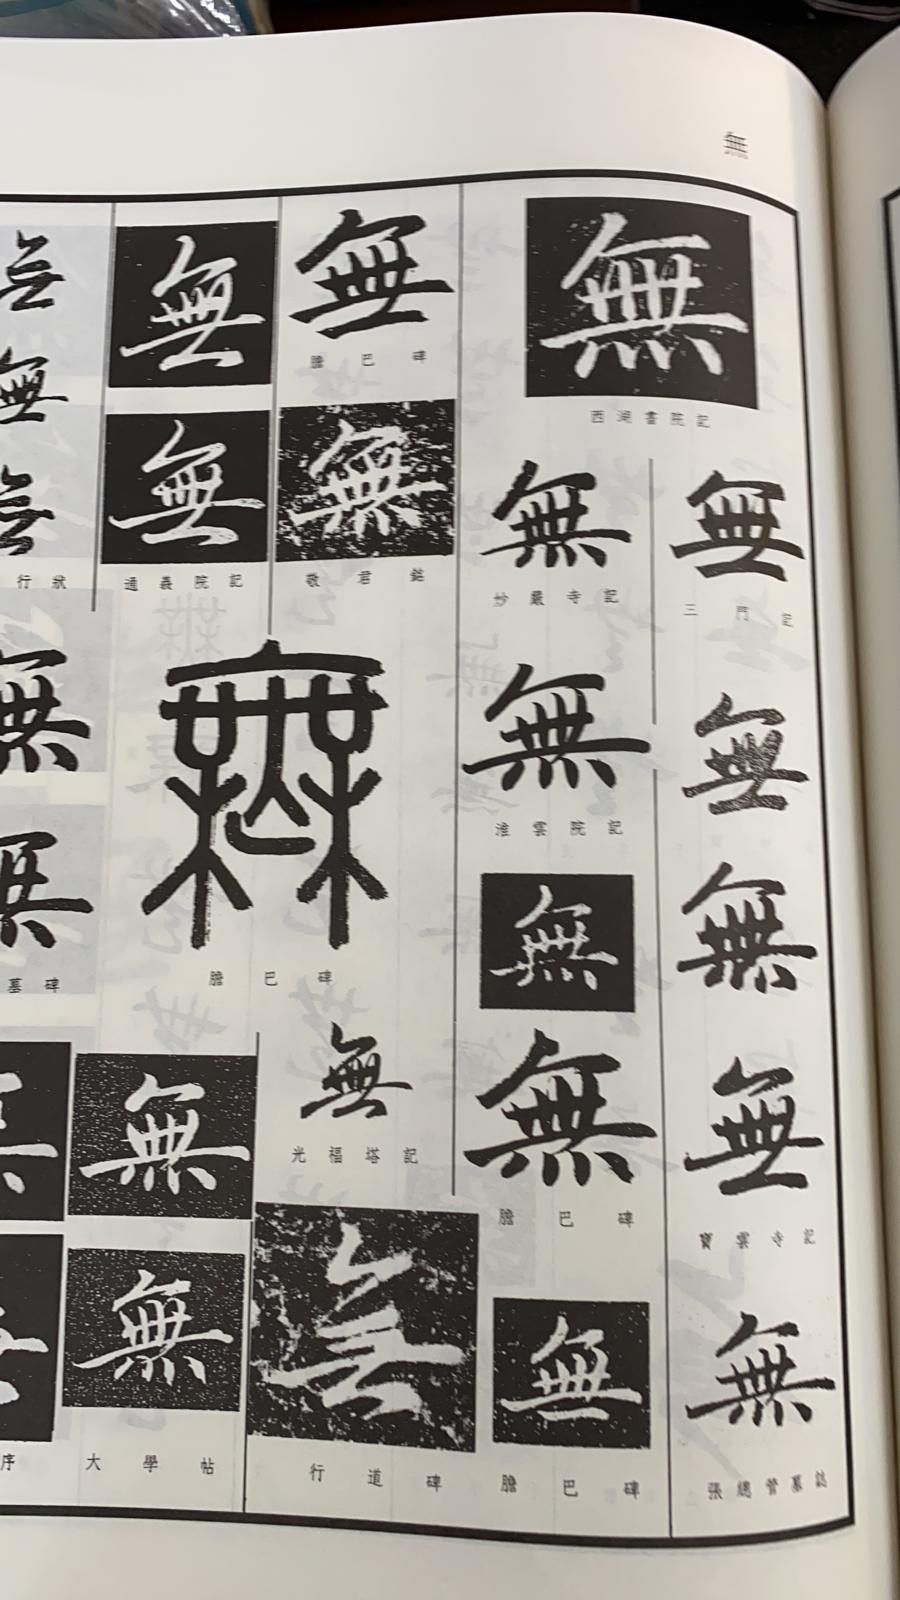 無
無
西湖書院記
無
三門記
無
無
無
寶雲寺記
無
張總管墓誌
無
妙嚴寺記
無
淮雲院記
無
無
膽巴碑
無
膽巴碑
無
膽巴碑
無
敬君銘
無
膽巴碑
無
光福塔記
無
行道碑
無
無
通義院記
無
無
大學帖
無
無
無
行狀
無
無
墓碑
序